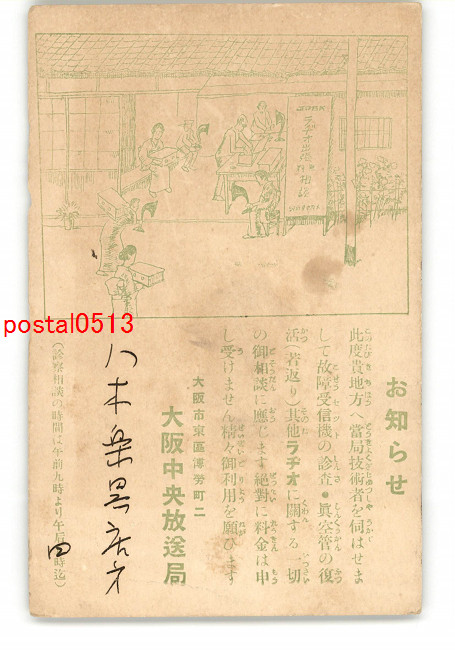 JOBK
ラヂオ出張
相談
お知らせ
此度貴地方へ當局技術者を伺はせま
して故障受信機の診査・眞空管の復
活(若返り)其他ラヂオに關する一切
の御相談に應じます絶對に料金は申
し受けません精々御利用を願ひます
大阪市東區博勞町二
大阪中央放送局
八木楽器店
(診察相談の時間は午前九時より午后四時迄)
postal0513